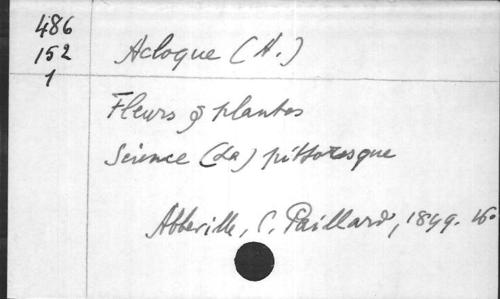 486
152
1
Acloque (A.)
Fleurs & plantes
Science (La) pittoresque
Abbeville, C. Paillard, 1899. 16°